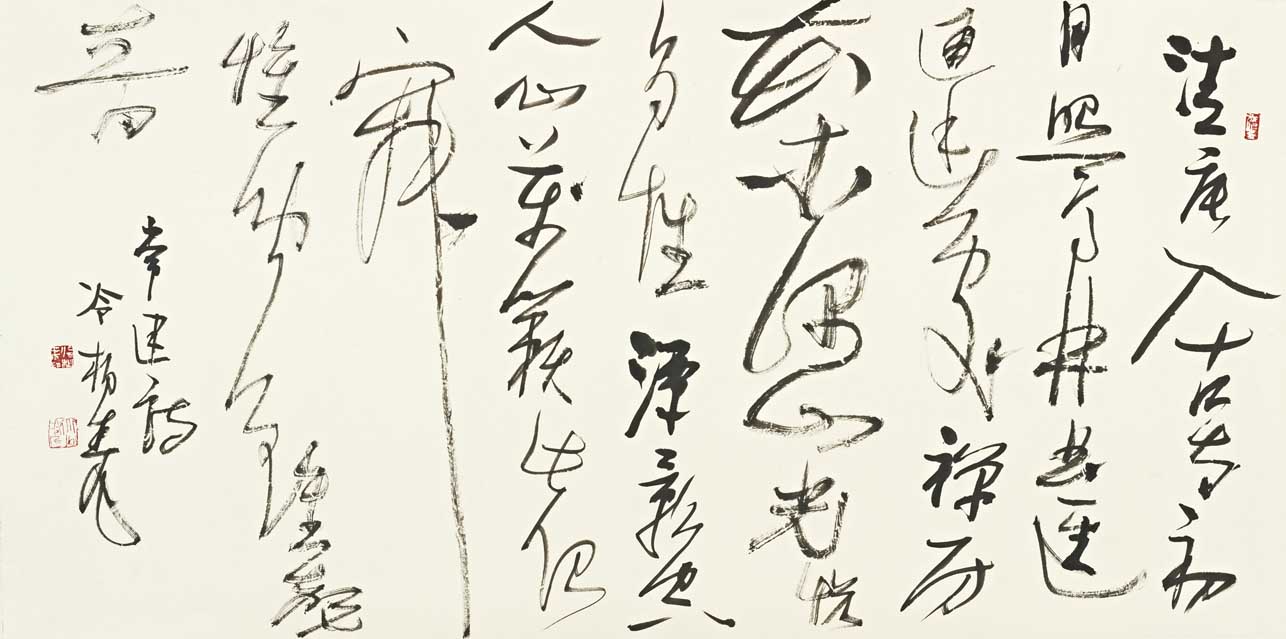 清晨入古寺初
日照高林曲逕
通幽處禅房
花木深山光悦
鸟性潭影空
人心萬籁此俱
寂
惟聞鐘磬
音
常建詩
冷